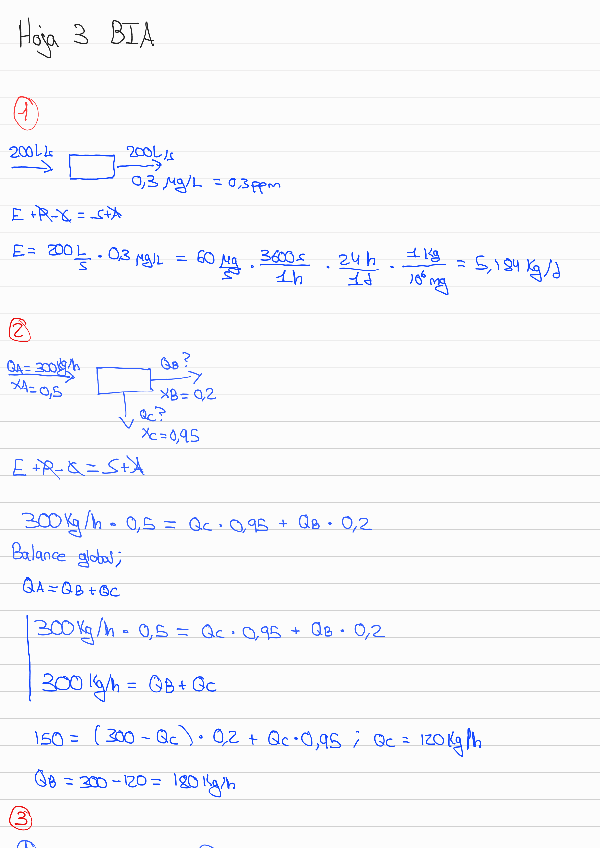 Hoja 3 BIA
1
200L/s 200L/s
0,3 mg/L = 0,3ppm
E + R - C = S + A
E = 200 L/s · 0,3 mg/L = 60 mg/s · 3600s/1h · 24h/1d · 1Kg/10⁶mg = 5,184 Kg/d
2
QA = 300Kg/h QB?
XA = 0,5 XB = 0,2
QC?
XC = 0,95
E + R - C = S + A
300Kg/h · 0,5 = QC · 0,95 + QB · 0,2
Balance global;
QA = QB + QC
300Kg/h · 0,5 = QC · 0,95 + QB · 0,2
300Kg/h = QB + QC
150 = (300 - QC) · 0,2 + QC · 0,95 ; QC = 120Kg/h
QB = 300 - 120 = 180Kg/h
3